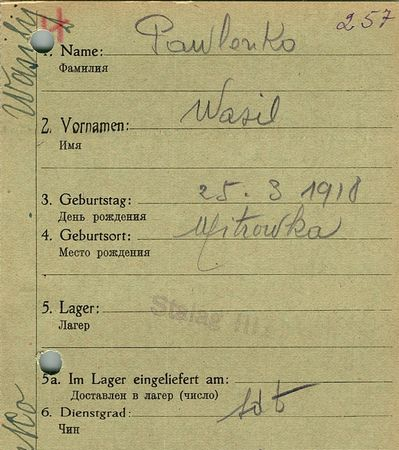 257
1. Name: Pawlenko
Фамилия
2. Vornamen: Wasil
Имя
3. Geburtstag: 25. 3 1918
День рождения
4. Geburtsort: Mitrowka
Место рождения
5. Lager: Stalag III
Лагерь
5a. Im Lager eingeliefert am:
Доставлен в лагерь (число)
6. Dienstgrad: Sdt
Чин